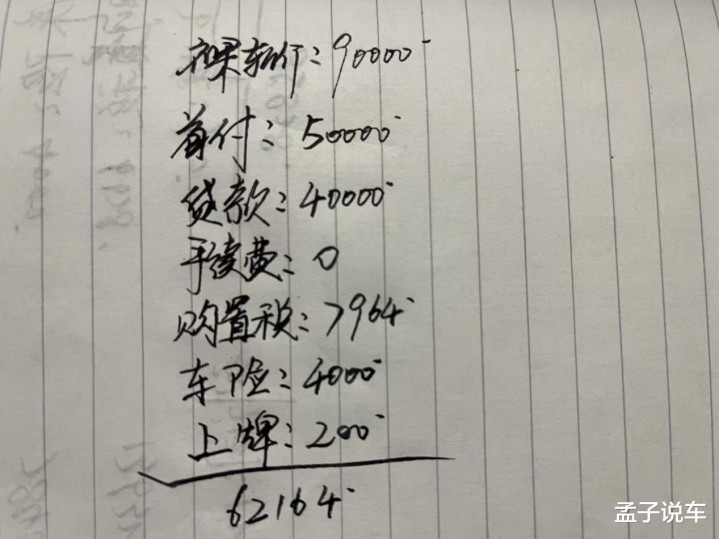 裸车价：90000
首付：50000
贷款：40000
手续费：0
购置税：7964
车险：4000
上牌：200
62164
孟子说车